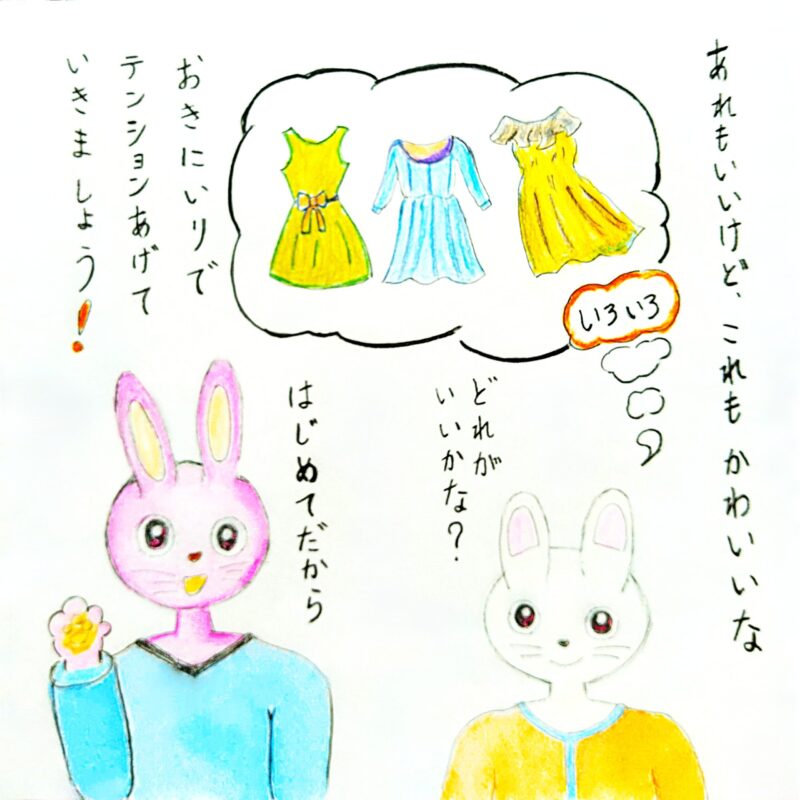 あれもいいけど、これもかわいいな
いろいろ
どれが
いいかな?
はじめてだから
おきにいりで
テンションあげて
いきましょう!